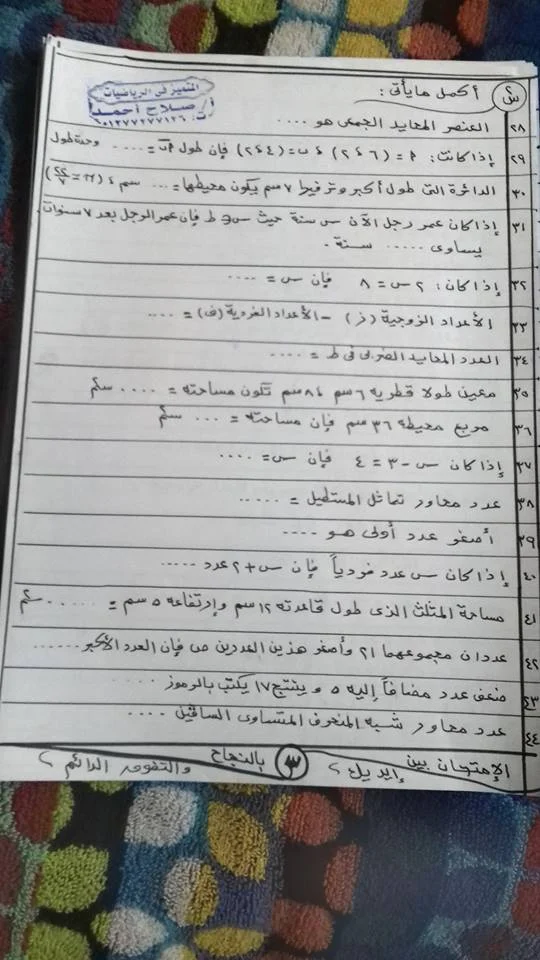 س٢ أكمل ما يأتى :
المتميز فى الرياضيات
أ/ صلاح أحمد
ت: ٠١٢٧٧٢٧٧١٢٦
٢٨ العنصر المحايد الجمعى هو ....
٢٩ إذا كانت : ٢ = (٦ ، ٢) ، ب = (٤ ، ٢) فإن طول ٢ب = .... وحدة طول
٣٠ الدائرة التى طول أكبر وتر فيها ٧ سم يكون محيطها = ... سم ، (π = ٢٢/٧)
٣١ إذا كان عمر رجل الآن س سنة حيث س ∈ ط فإن عمر الرجل بعد ٧ سنوات
يساوى ..... سنة .
٣٢ إذا كان : ٢ س = ٨ فإن س = ....
٣٣ الأعداد الزوجية (ز) - الأعداد الفردية (ف) = ....
٣٤ العدد المحايد الضربى فى ط = ....
٣٥ معين طولا قطريه ٦ سم ، ٨ سم تكون مساحته = .... سم٢
٣٦ مربع محيطه ٣٦ سم فإن مساحته = ... سم٢
٣٧ إذا كان س - ٣ = ٤ فإن س = ....
٣٨ عدد محاور تماثل المستطيل = .....
٣٩ أصغر عدد أولى هو ....
٤٠ إذا كان س عدد فردياً فإن س + ٢ عدد .....
٤١ مساحة المثلث الذى طول قاعدته ١٢ سم وإرتفاعه ٥ سم = ...... سم٢
٤٢ عددان مجموعهما ٢١ وأصغر هذين العددين ص فإن العدد الأكبر ......
٤٣ ضعف عدد مضافاً إليه ٥ وينتج ١٧ يكتب بالرموز .....
٤٤ عدد محاور شبه المنحرف المتساوى الساقين ....
الإمتحان بين إيديك ٢ ٣ بالنجاح والتفوق الدائم ٢